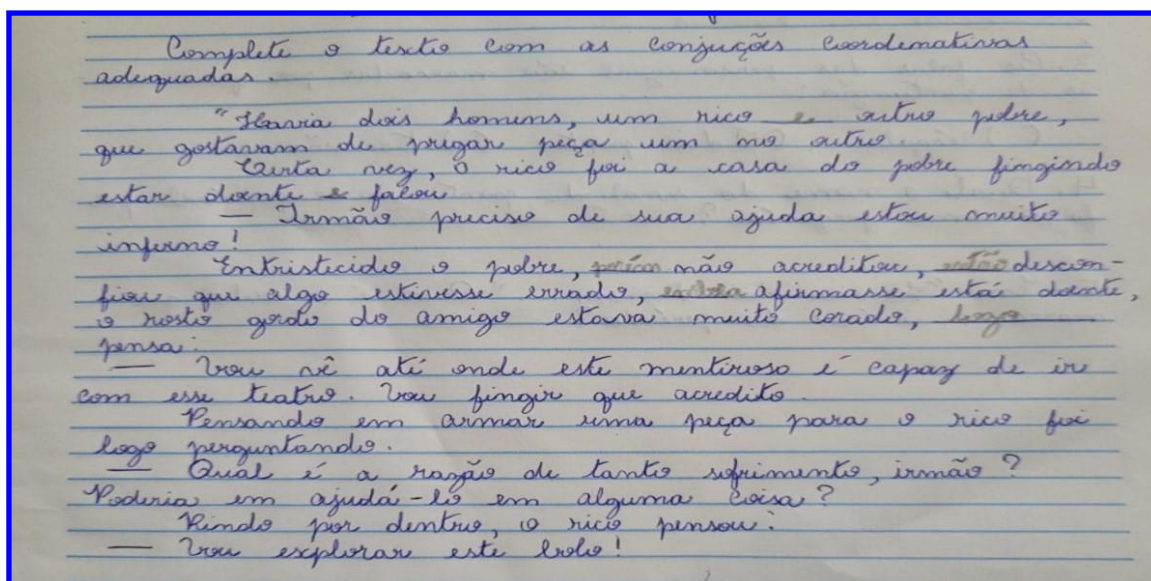 Complete o texctio com as conjuções coordenativas
adequadas.
"Havia dois homens, um rico e outro pobre,
que gostavam de pregar peça um no outro.
Certa vez, o rico foi a casa do pobre fingindo
estar doente e falou
— Irmão preciso de sua ajuda estou muito
infermo!
Entristecido o pobre, porém não acreditou, então descon-
fiou que algo estivesse errado, embora afirmasse está doente,
o rosto gordo do amigo estava muito corado, logo
pensa:
— Vou vê até onde este mentiroso é capaz de ir
com esse teatro. Vou fingir que acredito.
Pensando em armar uma peça para o rico foi
logo perguntando.
— Qual é a razão de tanto sofrimento, irmão?
Poderia em ajudá-lo em alguma coisa?
Rindo por dentro, o rico pensou:
— Vou explorar este bobo!